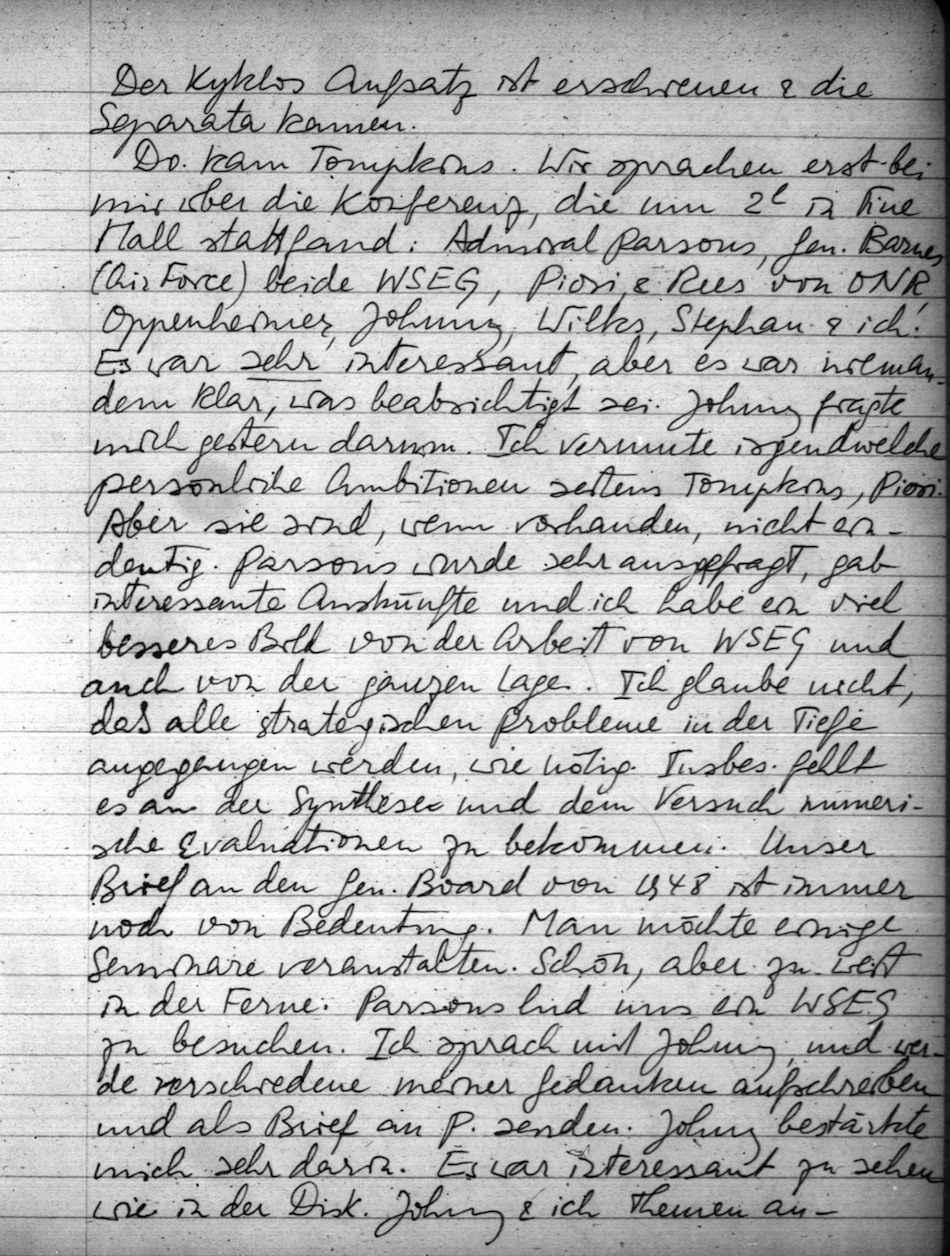 Der Kyklos Aufsatz ist erschienen & die
Separata kamen.
Do. kam Tompkins. Wir sprachen erst bei
mir über die Konferenz, die um 2h in Fine
Hall stattfand: Admiral Parsons, Gen. Barnes
(Air Force) beide WSEG, Piori & Rees von ONR,
Oppenheimer, Johnny, Wilks, Stephan & ich.
Es war sehr interessant, aber es war nieman-
dem klar, was beabsichtigt sei. Johnny fragte
mich gestern darum. Ich vermute irgendwelche
persönliche Ambitionen seitens Tompkins, Piori.
Aber sie sind, wenn vorhanden, nicht ein-
deutig. Parsons wurde sehr ausgefragt, gab
interessante Auskünfte und ich habe ein viel
besseres Bild von der Arbeit von WSEG und
auch von der ganzen Lage. Ich glaube nicht,
daß alle strategischen Probleme in der Tiefe
angegangen werden, wie nötig. Insbes. fehlt
es an der Synthese und dem Versuch numeri-
sche Evaluationen zu bekommen. Unser
Brief an den Gen. Board von 1948 ist immer
noch von Bedeutung. Man möchte einige
Seminare veranstalten. Schön, aber zu weit
in der Ferne. Parsons lud uns ein WSEG
zu besuchen. Ich sprach mit Johnny, und wer-
de verschiedene meiner Gedanken aufschreiben
und als Brief an P. senden. Johnny bestärkte
mich sehr darin. Es war interessant zu sehen
wie in der Disk. Johnny & ich Themen an-